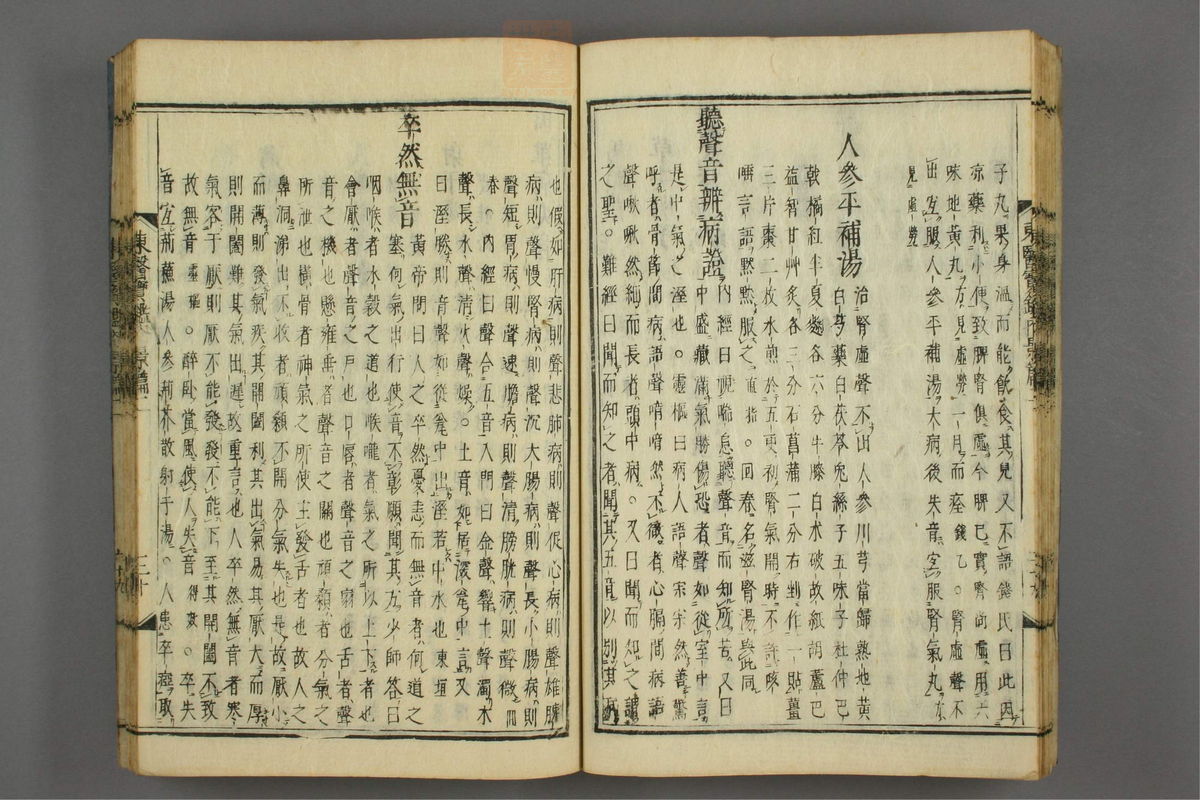 子丸果身溫而能飮食其兒又不語錢氏曰此因
凉藥利小便致脾腎俱虛今脾已實腎尙虛用六
味地黃丸方見虛勞一月而痊錢乙○腎虛聲不
出宜服人參平補湯大病後失音宜服腎氣丸方
見虛勞
人參平補湯
治腎虛聲不出人參川芎當歸熟地黃
白芍藥白茯苓兔絲子五味子杜仲巴
戟橘紅半夏麴各六分牛膝白朮破故紙胡蘆巴
益智甘艸炙各三分石菖蒲二分右剉作一貼薑
三片棗二枚水煎於五更初腎氣開時不許咳
嚥言語默默服之直指○回春名滋腎湯與此同
聽聲音辨病證
內經曰視喘息聽聲音而知所苦又曰
中盛藏滿氣勝傷恐者聲如從室中言
是中氣之溼也○靈樞曰病人語聲宋宋然善驚
呼者骨節間病語聲喑喑然不徹者心膈間病語
聲啾啾然細而長者頭中病○又曰聞而知之謂
之聖○難經曰聞而知之者聞其五音以別其病
也假如肝病則聲悲肺病則聲促心病則聲雄脾
病則聲慢腎病則聲沉大腸病則聲長小腸病則
聲短胃病則聲速膽病則聲清膀胱病則聲微回
春○內經曰聲合五音入門曰金聲響土聲濁木
聲長水聲淸火聲燥○土音如居深瓮中言又
曰溼勝則音聲如從瓮中出溼若中水也東垣
卒然無音
黃帝問曰人之卒然憂恚而無音者何道之
塞何氣出行使音不彰願聞其方少師答曰
咽喉者水穀之道也喉嚨者氣之所以上下者也
會厭者聲音之戶也口唇者聲音之扇也舌者聲
音之機也懸雍垂者聲音之關也頏顙者分氣之
所泄也橫骨者神氣之所使主發舌者也故人之
鼻洞涕出不收者頏顙不開分氣失也是故厭小
而薄則發氣疾其開闔利其出氣易其厭大而厚
則開闔難其氣出遲故重言也人卒然無音者寒
氣客于厭則厭不能發發不能下至其開闔不致
故無音靈樞○醉臥當風使人失音得效○卒失
音宜荊蘓湯人參荊芥散射干湯○人患卒瘂取
東醫寶鑑 內景篇二
二十